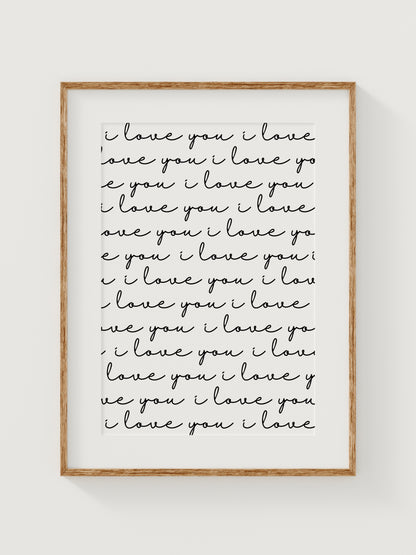 i love you i love
love you i love yo
e you i love you
i love you i love
ove you i love you
e you i love you i
u i love you i love
i love you i love
ove you i love yo
i i love you i love
love you i love y
ve you i love you
i love you i love